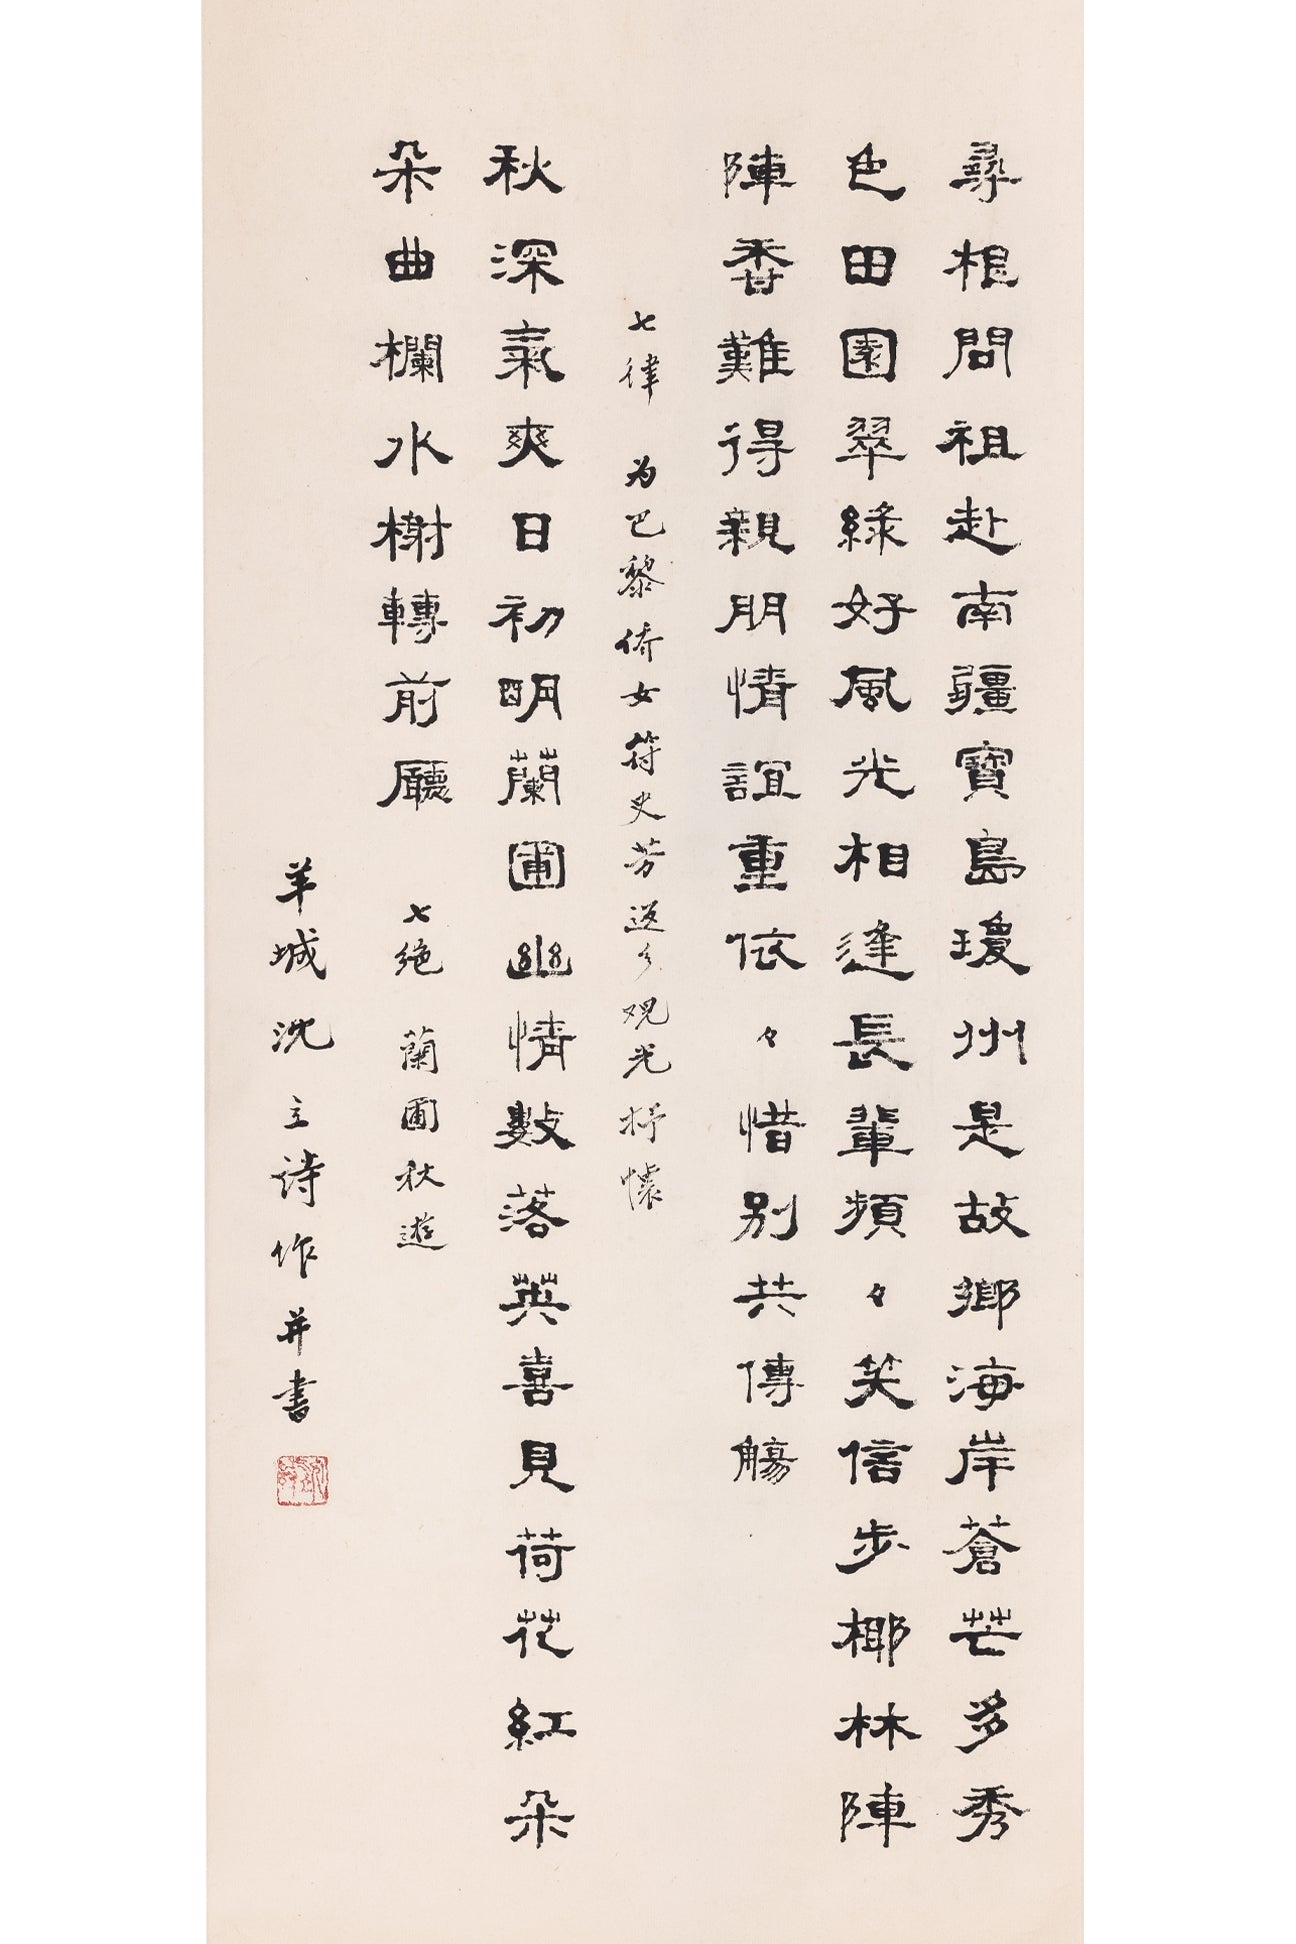 尋根問祖赴南疆寶島瓊州是故鄉海岸蒼芒多秀
色田園翠綠好風光相逢長輩頻々笑信步椰林陣
陣香難得親朋情誼重依々惜別共傳觴
七律 为巴黎侨女符史芳返乡观光抒懷
秋深氣爽日初明蘭圃幽情數落英喜見荷花紅朵
朵曲欄水榭轉前廳 七絕 蘭圃秋遊
羊城沈立诗作并書